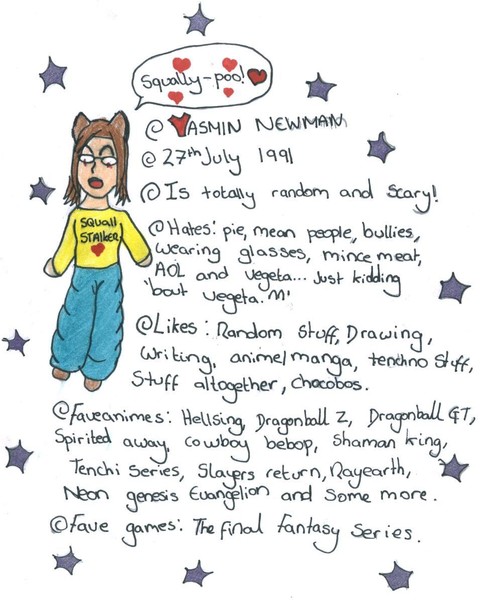 Squally-poo!
@ YASMIN NEWMAN
@ 27th July 1991
@ Is totally random and scary!
SQUALL
STALKER
@Hates: pie, mean people, bullies,
wearing glasses, mince meat,
AOL and vegeta... Just kidding
'bout vegeta.
@Likes: Random Stuff, Drawing,
Writing, anime/manga, techno stuff,
Stuff altogether, Chocobos.
@Faveanimes: Hellsing, Dragonball Z, Dragonball GT,
Spirited away, Cowboy bebop, Shaman King,
Tenchi Series, Slayers return, Rayearth,
Neon genesis Evangelion and Some more.
@Fave games: The final Fantasy Series.